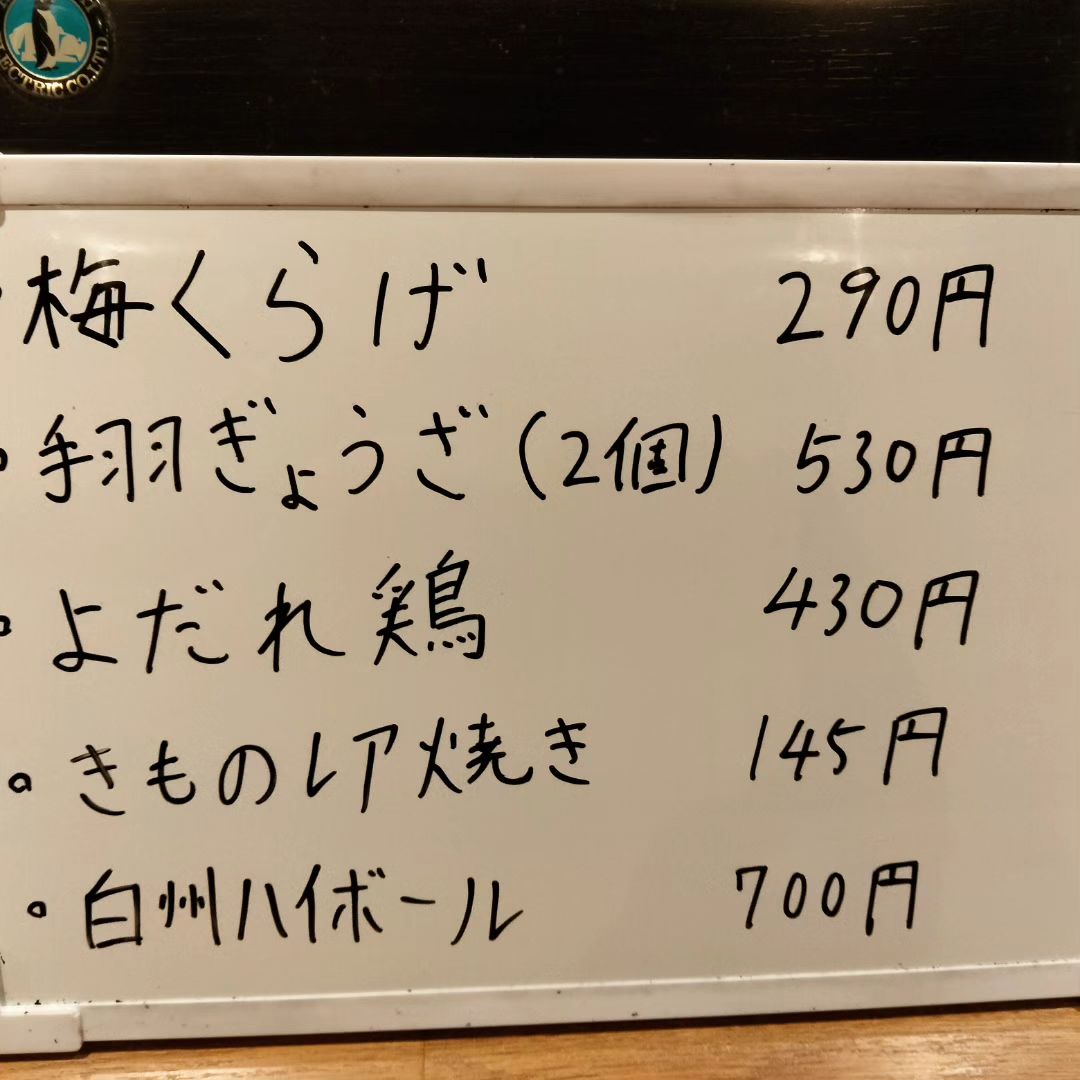 ECTRIC CO.LTD.
梅くらげ 290円
手羽ぎょうざ(2個) 530円
よだれ鶏 430円
きものレア焼き 145円
白州ハイボール 700円